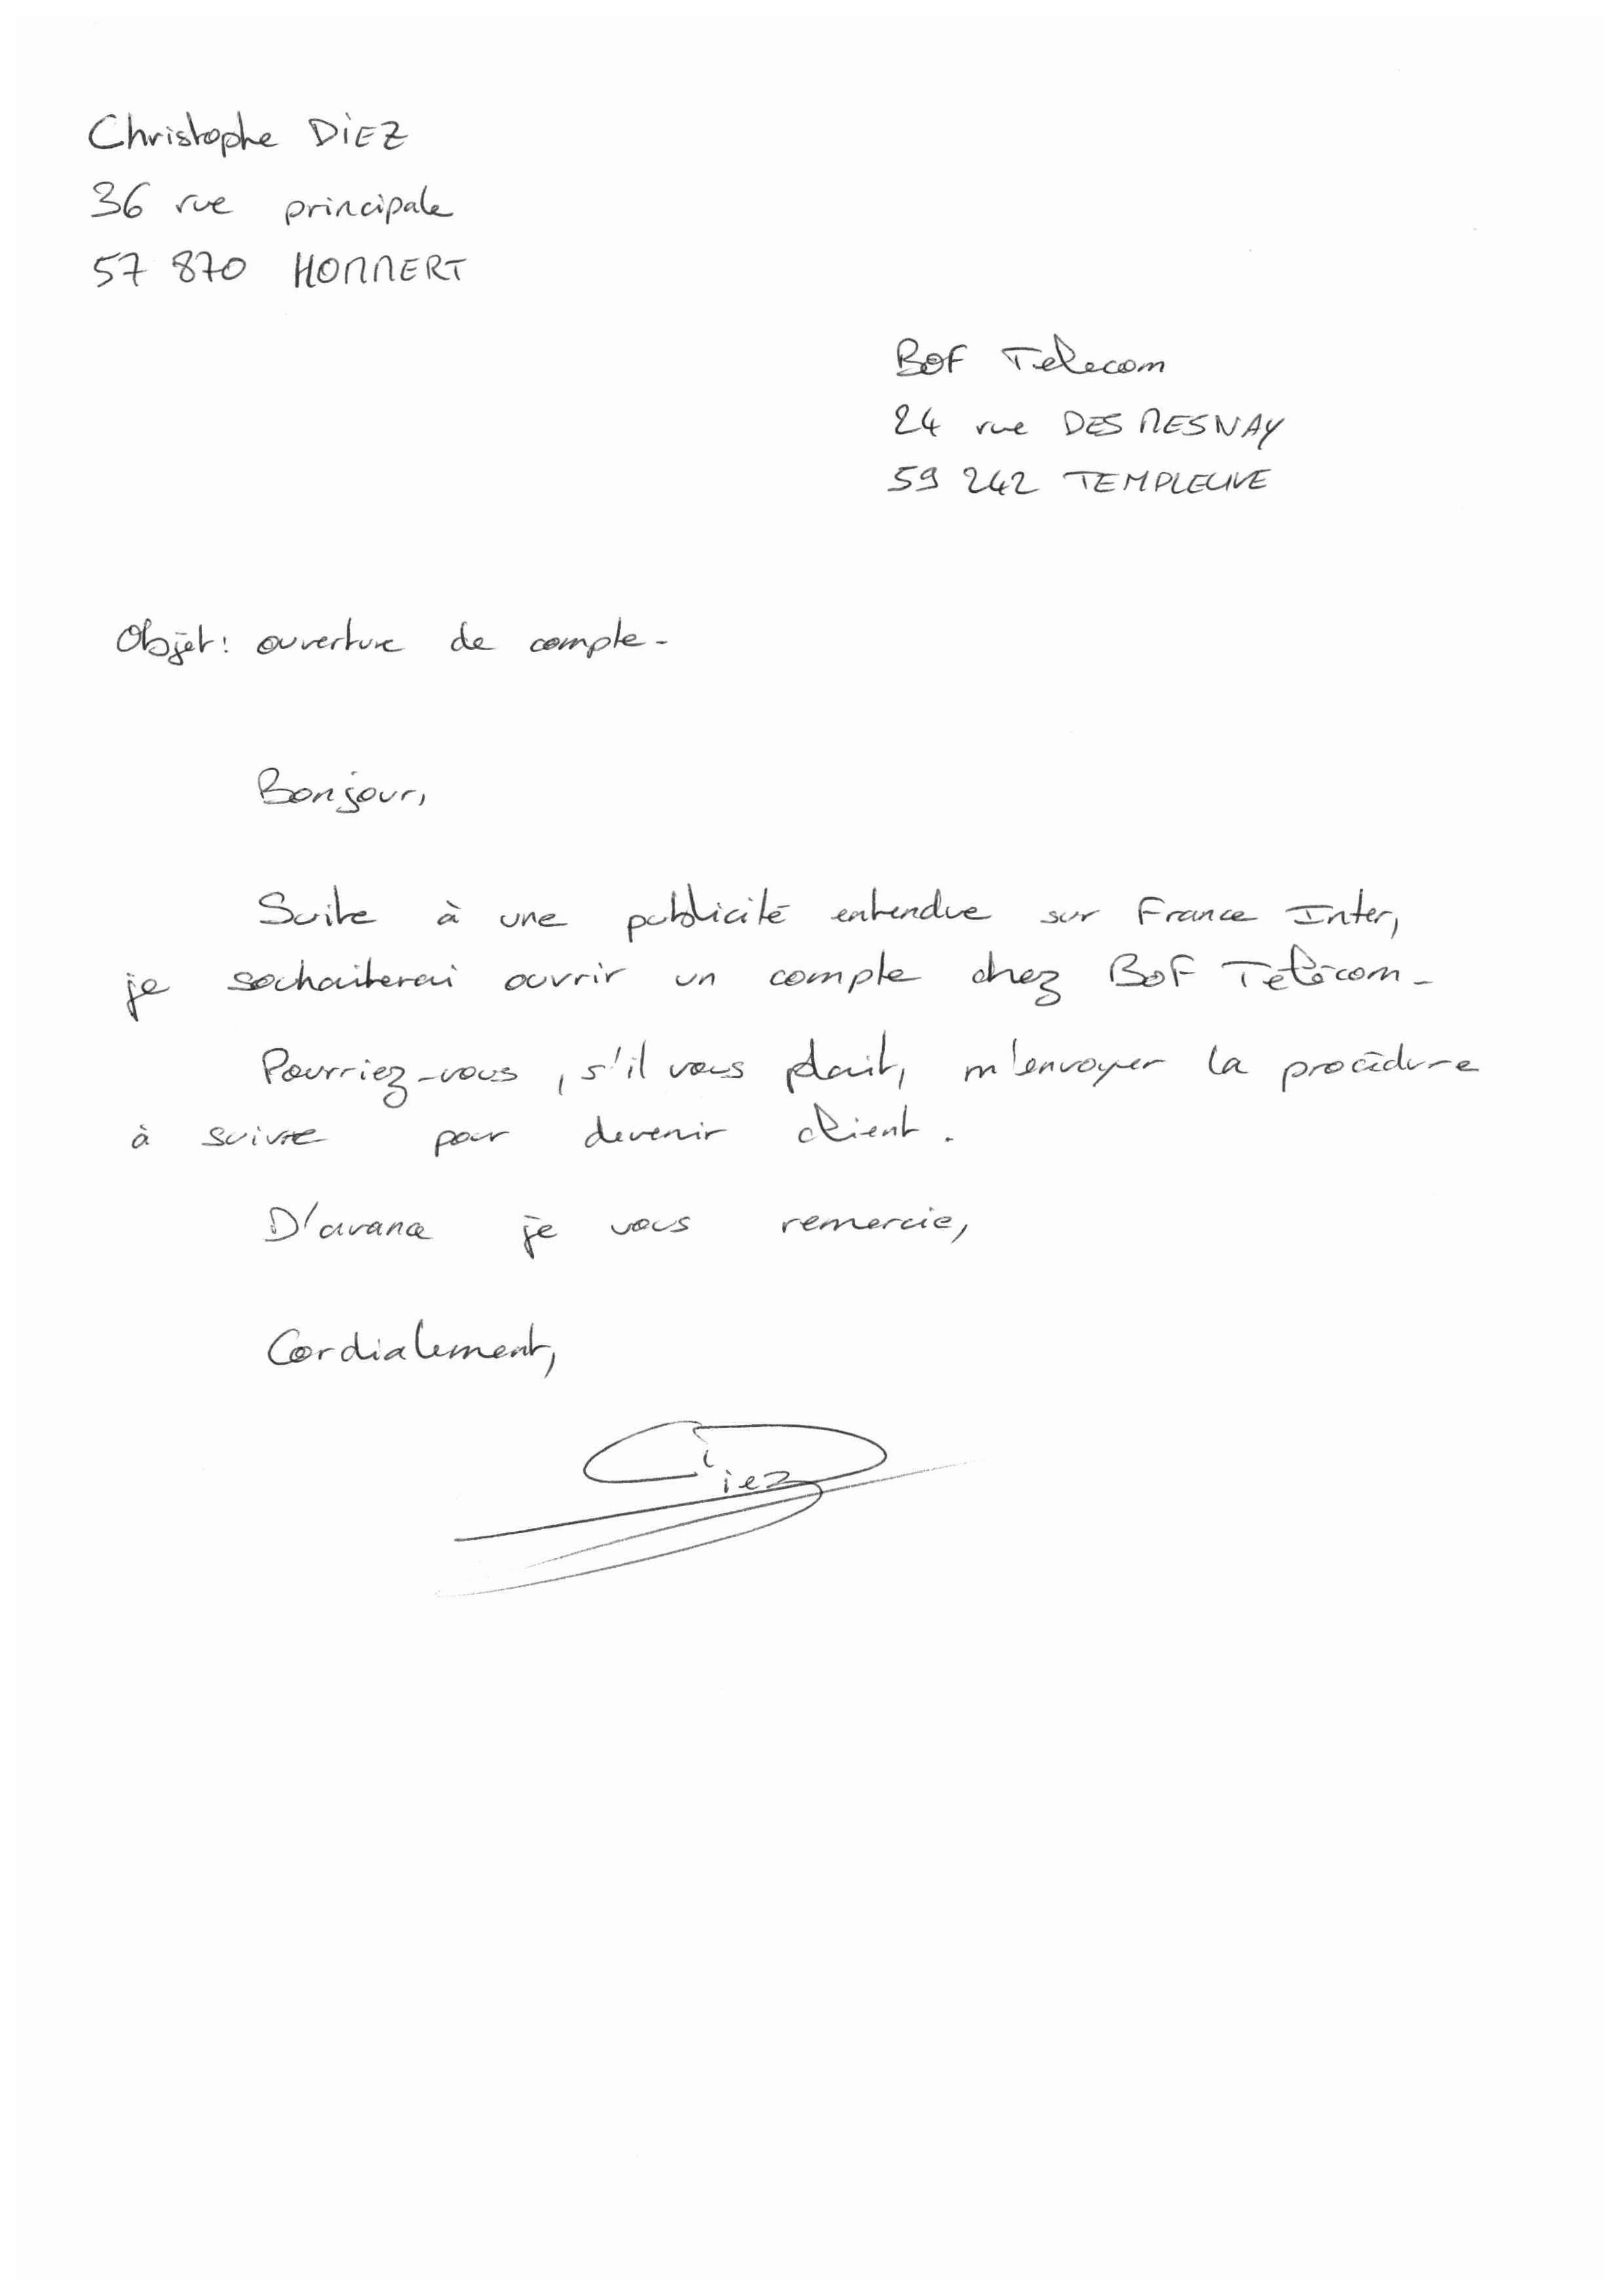 Christophe DIEZ
36 rue principale
57 870 HOMMERT
BOF Telecom
24 rue DESMESNAY
59 242 TEMPLEUVE
Objet : ouverture de compte.
Bonjour,
Suite à une publicité entendue sur France Inter,
je souhaiterai ouvrir un compte chez BOF Télécom.
Pourriez-vous, s'il vous plait, m'envoyer la procédure
à suivre pour devenir client.
D'avance je vous remercie,
Cordialement,
Diez